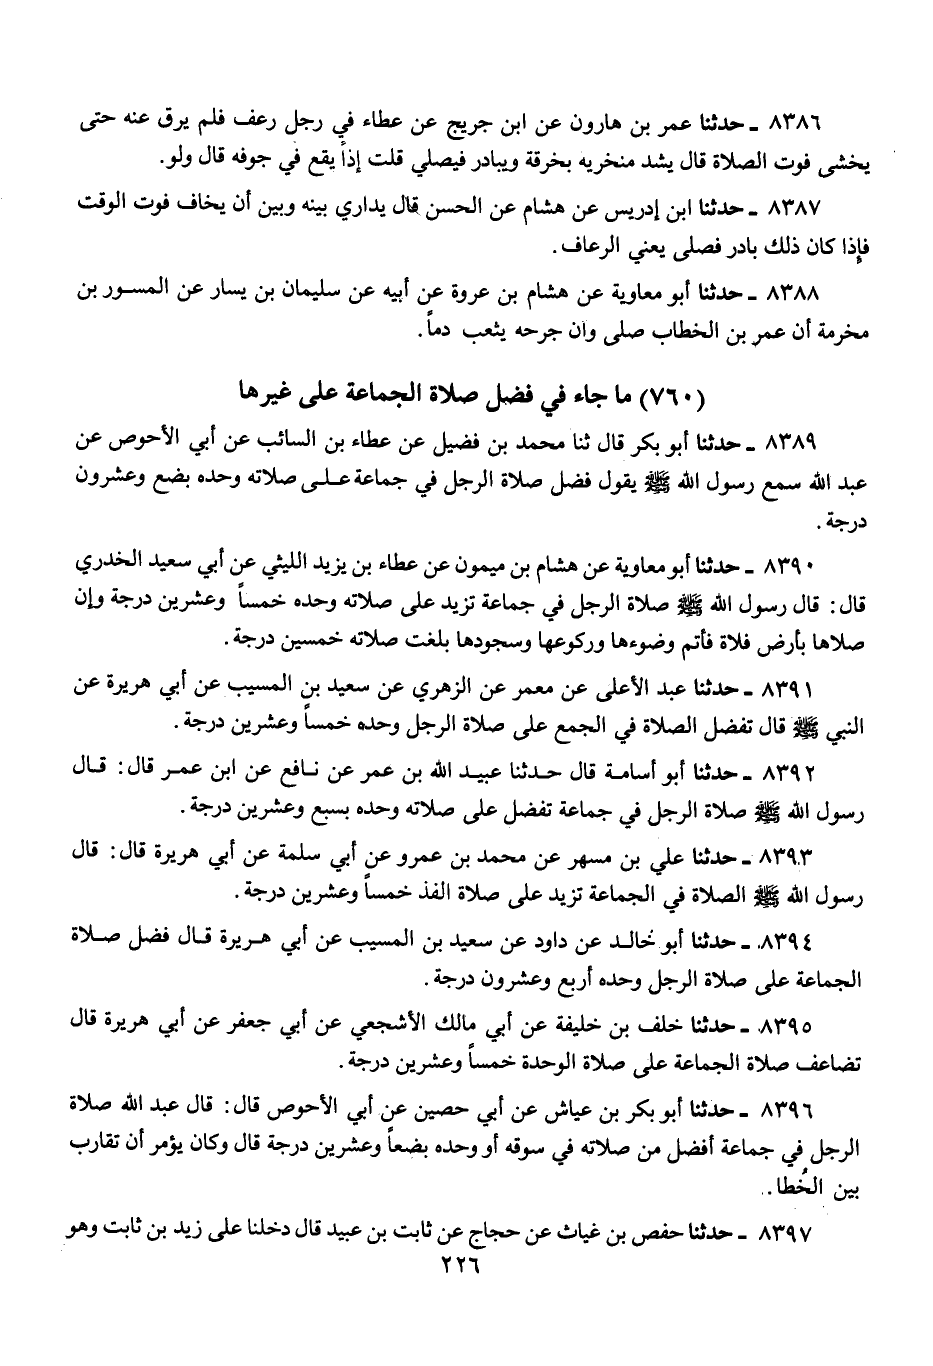 ٨٣٨٦ ـ حدثنا عمر بن هارون عن ابن جريج عن عطاء في رجل رعف فلم يرق عنه حتى
يخشى فوت الصلاة قال يشد منخريه بخرقة ويبادر فيصلي قلت إذاً يقع في جوفه قال ولو.
٨٣٨٧ ـ حدثنا ابن إدريس عن هشام عن الحسن قال يداري بينه وبين أن يخاف فوت الوقت
فإذا كان ذلك بادر فصلى يعني الرعاف.
٨٣٨٨ ـ حدثنا أبو معاوية عن هشام بن عروة عن أبيه عن سليمان بن يسار عن المسور بن
مخرمة أن عمر بن الخطاب صلى وان جرحه يثعب دماً.
(٧٦٠) ما جاء في فضل صلاة الجماعة على غيرها
٨٣٨٩ ـ حدثنا أبو بكر قال ثنا محمد بن فضيل عن عطاء بن السائب عن أبي الأحوص عن
عبد الله سمع رسول الله ﷺ يقول فضل صلاة الرجل في جماعة على صلاته وحده بضع وعشرون
درجة.
٨٣٩٠ ـ حدثنا أبو معاوية عن هشام بن ميمون عن عطاء بن يزيد الليثي عن أبي سعيد الخدري
قال: قال رسول الله ﷺ صلاة الرجل في جماعة تزيد على صلاته وحده خمساً وعشرين درجة وإن
صلاها بأرض فلاة فأتم وضوءها وركوعها وسجودها بلغت صلاته خمسين درجة.
٨٣٩١ ـ حدثنا عبد الأعلى عن معمر عن الزهري عن سعيد بن المسيب عن أبي هريرة عن
النبي ﷺ قال تفضل الصلاة في الجمع على صلاة الرجل وحده خمساً وعشرين درجة.
٨٣٩٢ ـ حدثنا أبو أسامة قال حدثنا عبيد الله بن عمر عن نافع عن ابن عمر قال: قال
رسول الله ﷺ صلاة الرجل في جماعة تفضل على صلاته وحده بسبع وعشرين درجة.
٨٣٩٣ ـ حدثنا علي بن مسهر عن محمد بن عمرو عن أبي سلمة عن أبي هريرة قال: قال
رسول الله ﷺ الصلاة في الجماعة تزيد على صلاة الفذ خمساً وعشرين درجة.
٨٣٩٤ ـ حدثنا أبو خالد عن داود عن سعيد بن المسيب عن أبي هريرة قال فضل صلاة
الجماعة على صلاة الرجل وحده أربع وعشرون درجة.
٨٣٩٥ ـ حدثنا خلف بن خليفة عن أبي مالك الأشجعي عن أبي جعفر عن أبي هريرة قال
تضاعف صلاة الجماعة على صلاة الوحدة خمساً وعشرين درجة.
٨٣٩٦ ـ حدثنا أبو بكر بن عياش عن أبي حصين عن أبي الأحوص قال: قال عبد الله صلاة
الرجل في جماعة أفضل من صلاته في سوقه أو وحده بضعاً وعشرين درجة قال وكان يؤمر أن تقارب
بين الخُطا.
٨٣٩٧ ـ حدثنا حفص بن غياث عن حجاج عن ثابت بن عبيد قال دخلنا على زيد بن ثابت وهو
٢٢٦